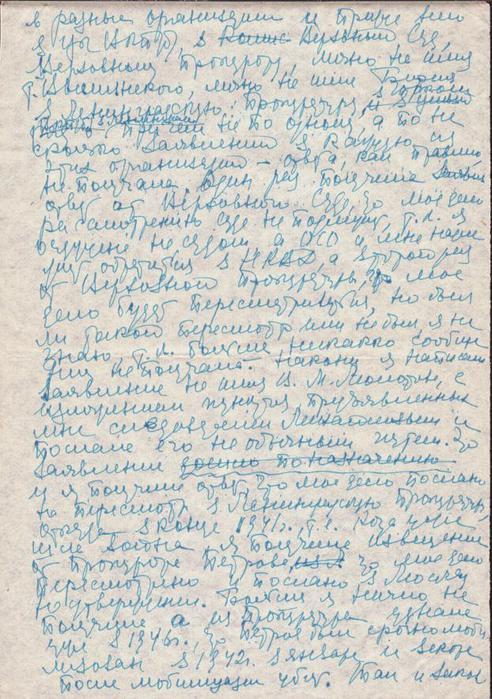 в разные организации и
я
Верховный Суд,
Верховному Прокурору лично на имя
т. Вышинского, лично на имя
в Ленинградскую прокуратуру,
не по одному, а по не
сколько заявлений в каждую из
этих организаций – ответа, как правило,
не получала. Один раз получила
ответ от Верховного Суда, что мое дело
рассмотрению суда не подлежит, т.к. я
осуждена не судом а ОСО и мне надо
обратиться в НКВД а второй раз
от Верховной Прокуратуры, что мое
дело будет пересматриваться, но был
ли такой пересмотр или не был я не
знаю, т.к. больше никакого сообще
ния не получала. Наконец я написала
Заявление на имя В. М. Молотова, с
изложением пунктов предъявленных
мне следователем и
послала его не обычным путем. Это
заявление дошло по назначению
и я получила ответ что мое дело послано
на пересмотр в Ленинградскую прокуратуру
откуда в конце 1941г. т.е. когда уже
шла война я получила извещение
от прокурора Петрова, что мое дело
пересмотрено и послано в Москву
на утверждение. Больше я ничего не
получила а из прокуратуры узнала
уже в 1946г. что Петров был срочно моби
лизован в 1942г. в январе и вскоре
после мобилизации убит. Так и